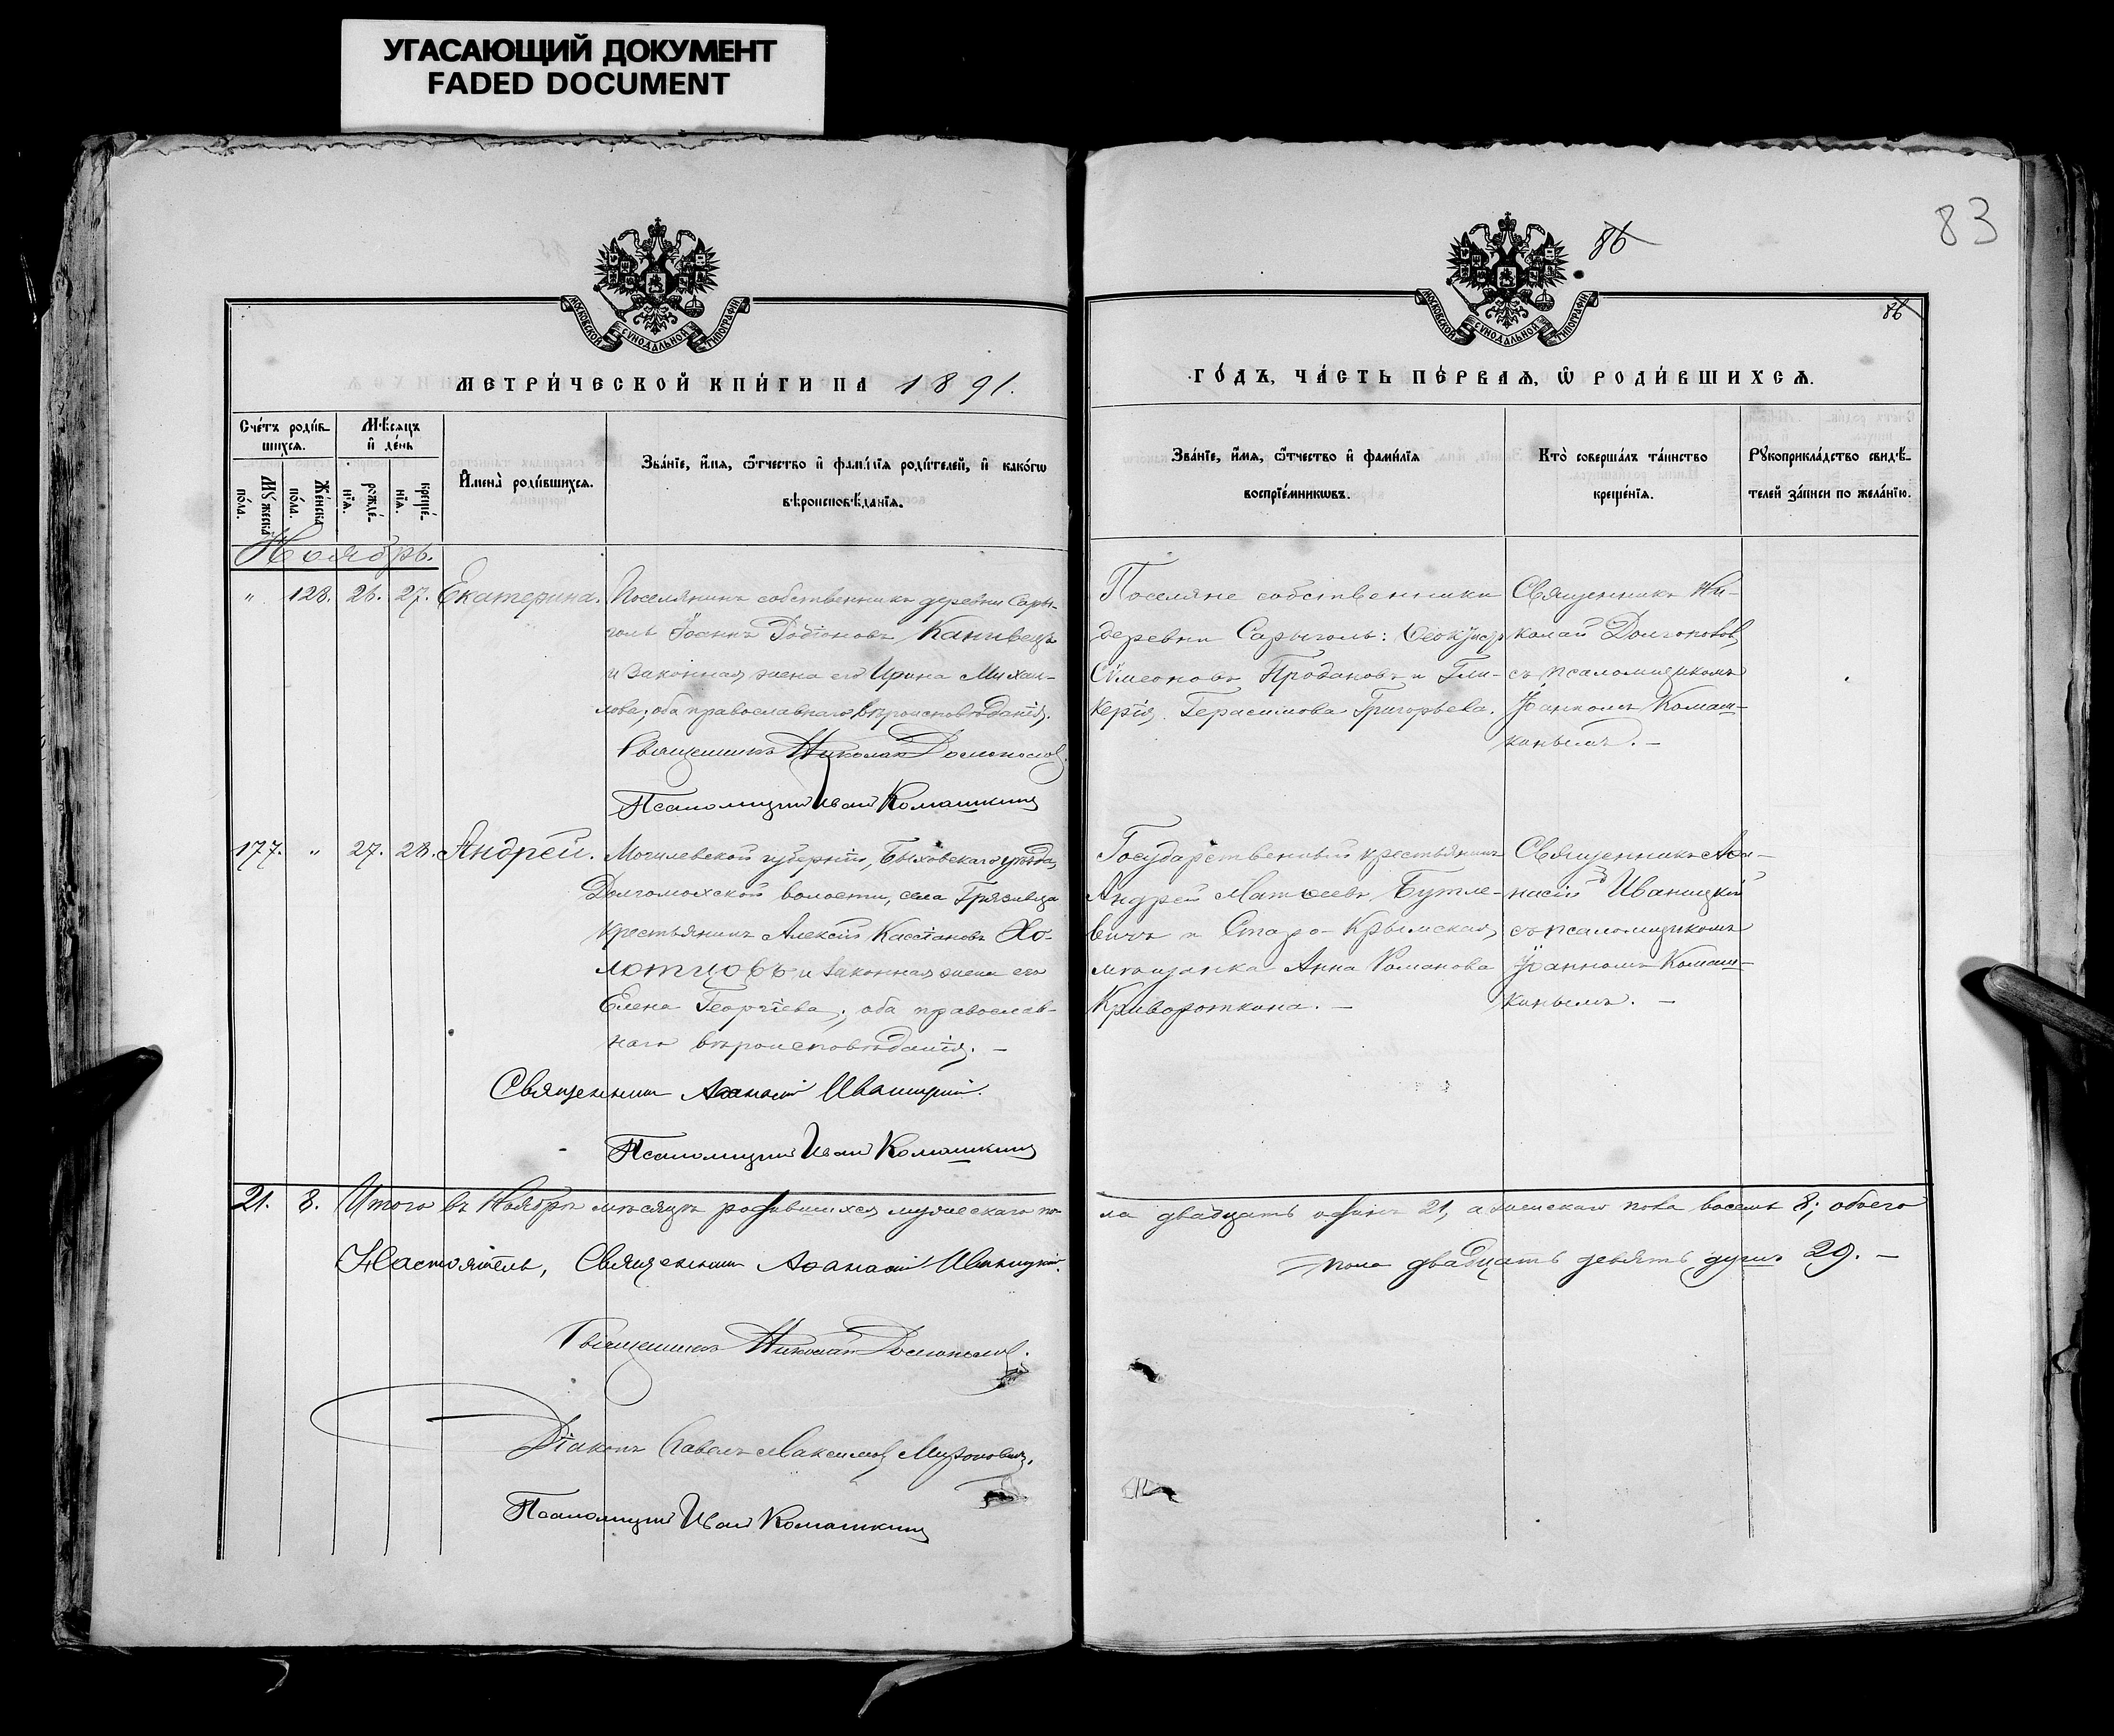 УГАСАЮЩИЙ ДОКУМЕНТ
FADED DOCUMENT
83
86
86
МОСКОВСКОЙ СУНОДАЛЬНОЙ ТИПОГРАФІИ
МОСКОВСКОЙ СУНОДАЛЬНОЙ ТИПОГРАФІИ
МЕТРИ́ЧЕСКОЙ КНИ́ГИ НА 1891.
ГО́ДЪ, ЧА́СТЬ ПЕ́РВАѦ, Ѡ РОДИ́ВШИХСѦ.
Сче́тъ роди́в-
шихсѧ.
Мѣ́сѧцъ
и де́нь
Мꙋ́жеска по́ла.
Же́нска по́ла.
рожде́-нїѧ.
креще́-нїѧ.
И҆мена̀ роди́вшихсѧ.
Зва́нїе, и҆́мѧ, ѻ҆́тчество и҆ фами́лїѧ роди́телей, и҆ како́гѡ
вѣроисповѣ́данїѧ.
Зва́нїе, и҆́мѧ, ѻ҆́тчество и҆ фами́лїѧ
воспрїе́мникѡвъ.
Кто̀ соверша́лъ та́инство
креще́нїѧ.
Рꙋкоприкла́дство свидѣ́-
телей за́писи по жела́нїю.
Ноябрь.
" 128. 26. 27. Екатерина.
Поселянинъ собственникъ деревни Сары-
голь Іоаннъ Родіоновъ Канивецъ
и законная жена его Ирина Михаи-
лова, оба православнаго вѣроисповѣданія.
Священникъ Николай Долгополов
Псаломщикъ Иван Комашкинъ
Поселяне собственники
деревни Сарыголь:
Сѵмеоновъ Продановъ и Гли-
керія Герасимова Григорьева.
Священникъ Ни-
колай Долгополов
съ псаломщикомъ
Іоанномъ Комаш-
кинымъ. –
177. " 27. 28. Андрей.
Могилевской губерніи, Быховскаго уѣзда,
Долгомохской волости, села Грязивца
крестьянинъ Алексій Кассіановъ Хо-
лотцовъ и законная жена его
Елена Георгіева; оба православ-
наго вѣроисповѣданія. –
Священникъ Аѳанасій Иваницкій.
Псаломщикъ Иван Комашкинъ
Государственный крестьянинъ
Андрей Матѳеевъ Бутке-
вичъ и Старо-Крымская
мѣщанка Анна Романова
Кривороткина. –
Священникъ Аѳа-
насій Иваницкій
съ псаломщикомъ
Іоанномъ Комаш-
кинымъ. –
21. 8. Итого въ Ноябрѣ мѣсяцѣ родившихся мужескаго по-
ла двадцать одинъ 21, а женскаго пола восемь 8; обоего
пола двадцать девять душъ 29. –
Настоятель, Священникъ Аѳанасій Иваницкій.
Священникъ Николай Долгополов.
Діаконъ Павелъ Максимов
Псаломщикъ Иван Комашкинъ